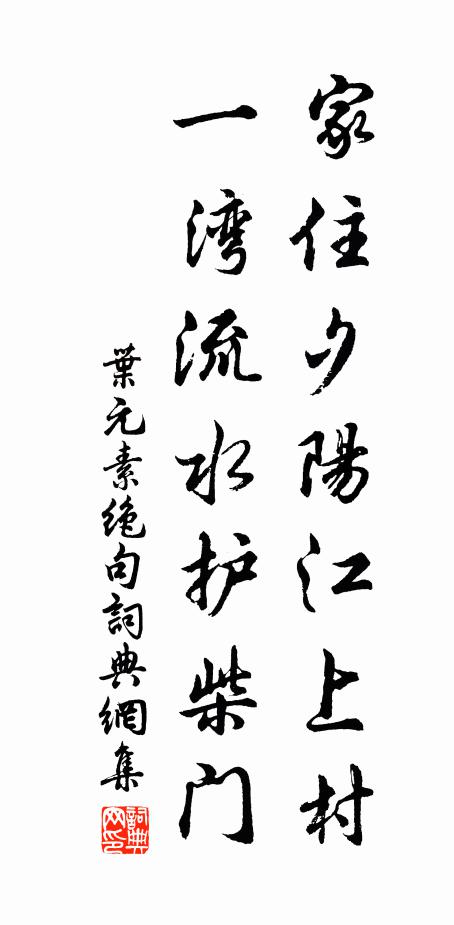 家住夕陽江上村
一湾流水护柴门
葉元素绝句詞典網集
詞典网印